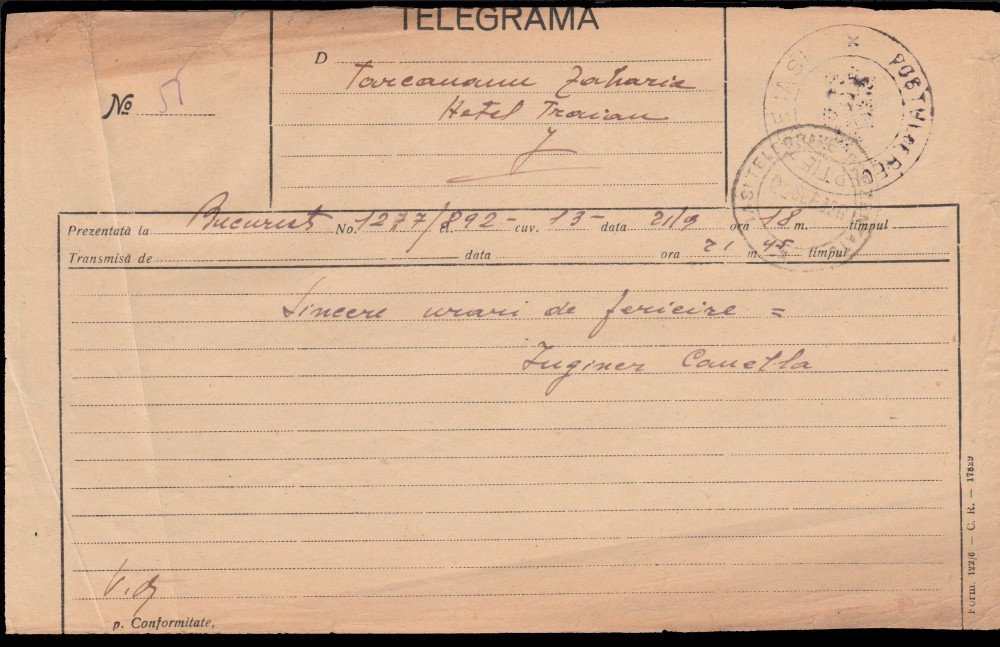 TELEGRAMA
D
Zaharia
Hotel Traian
No
Prezentată la Bucuresti No. 1277/892 cl. cuv. 13 data 21/9 ora 18 m. timpul
Transmisă de data ora 21 m. 45 timpul
Sincere urari de fericire =
Inginer Canella
p. Conformitate,
Form. 122/6 — C. R. — 17829